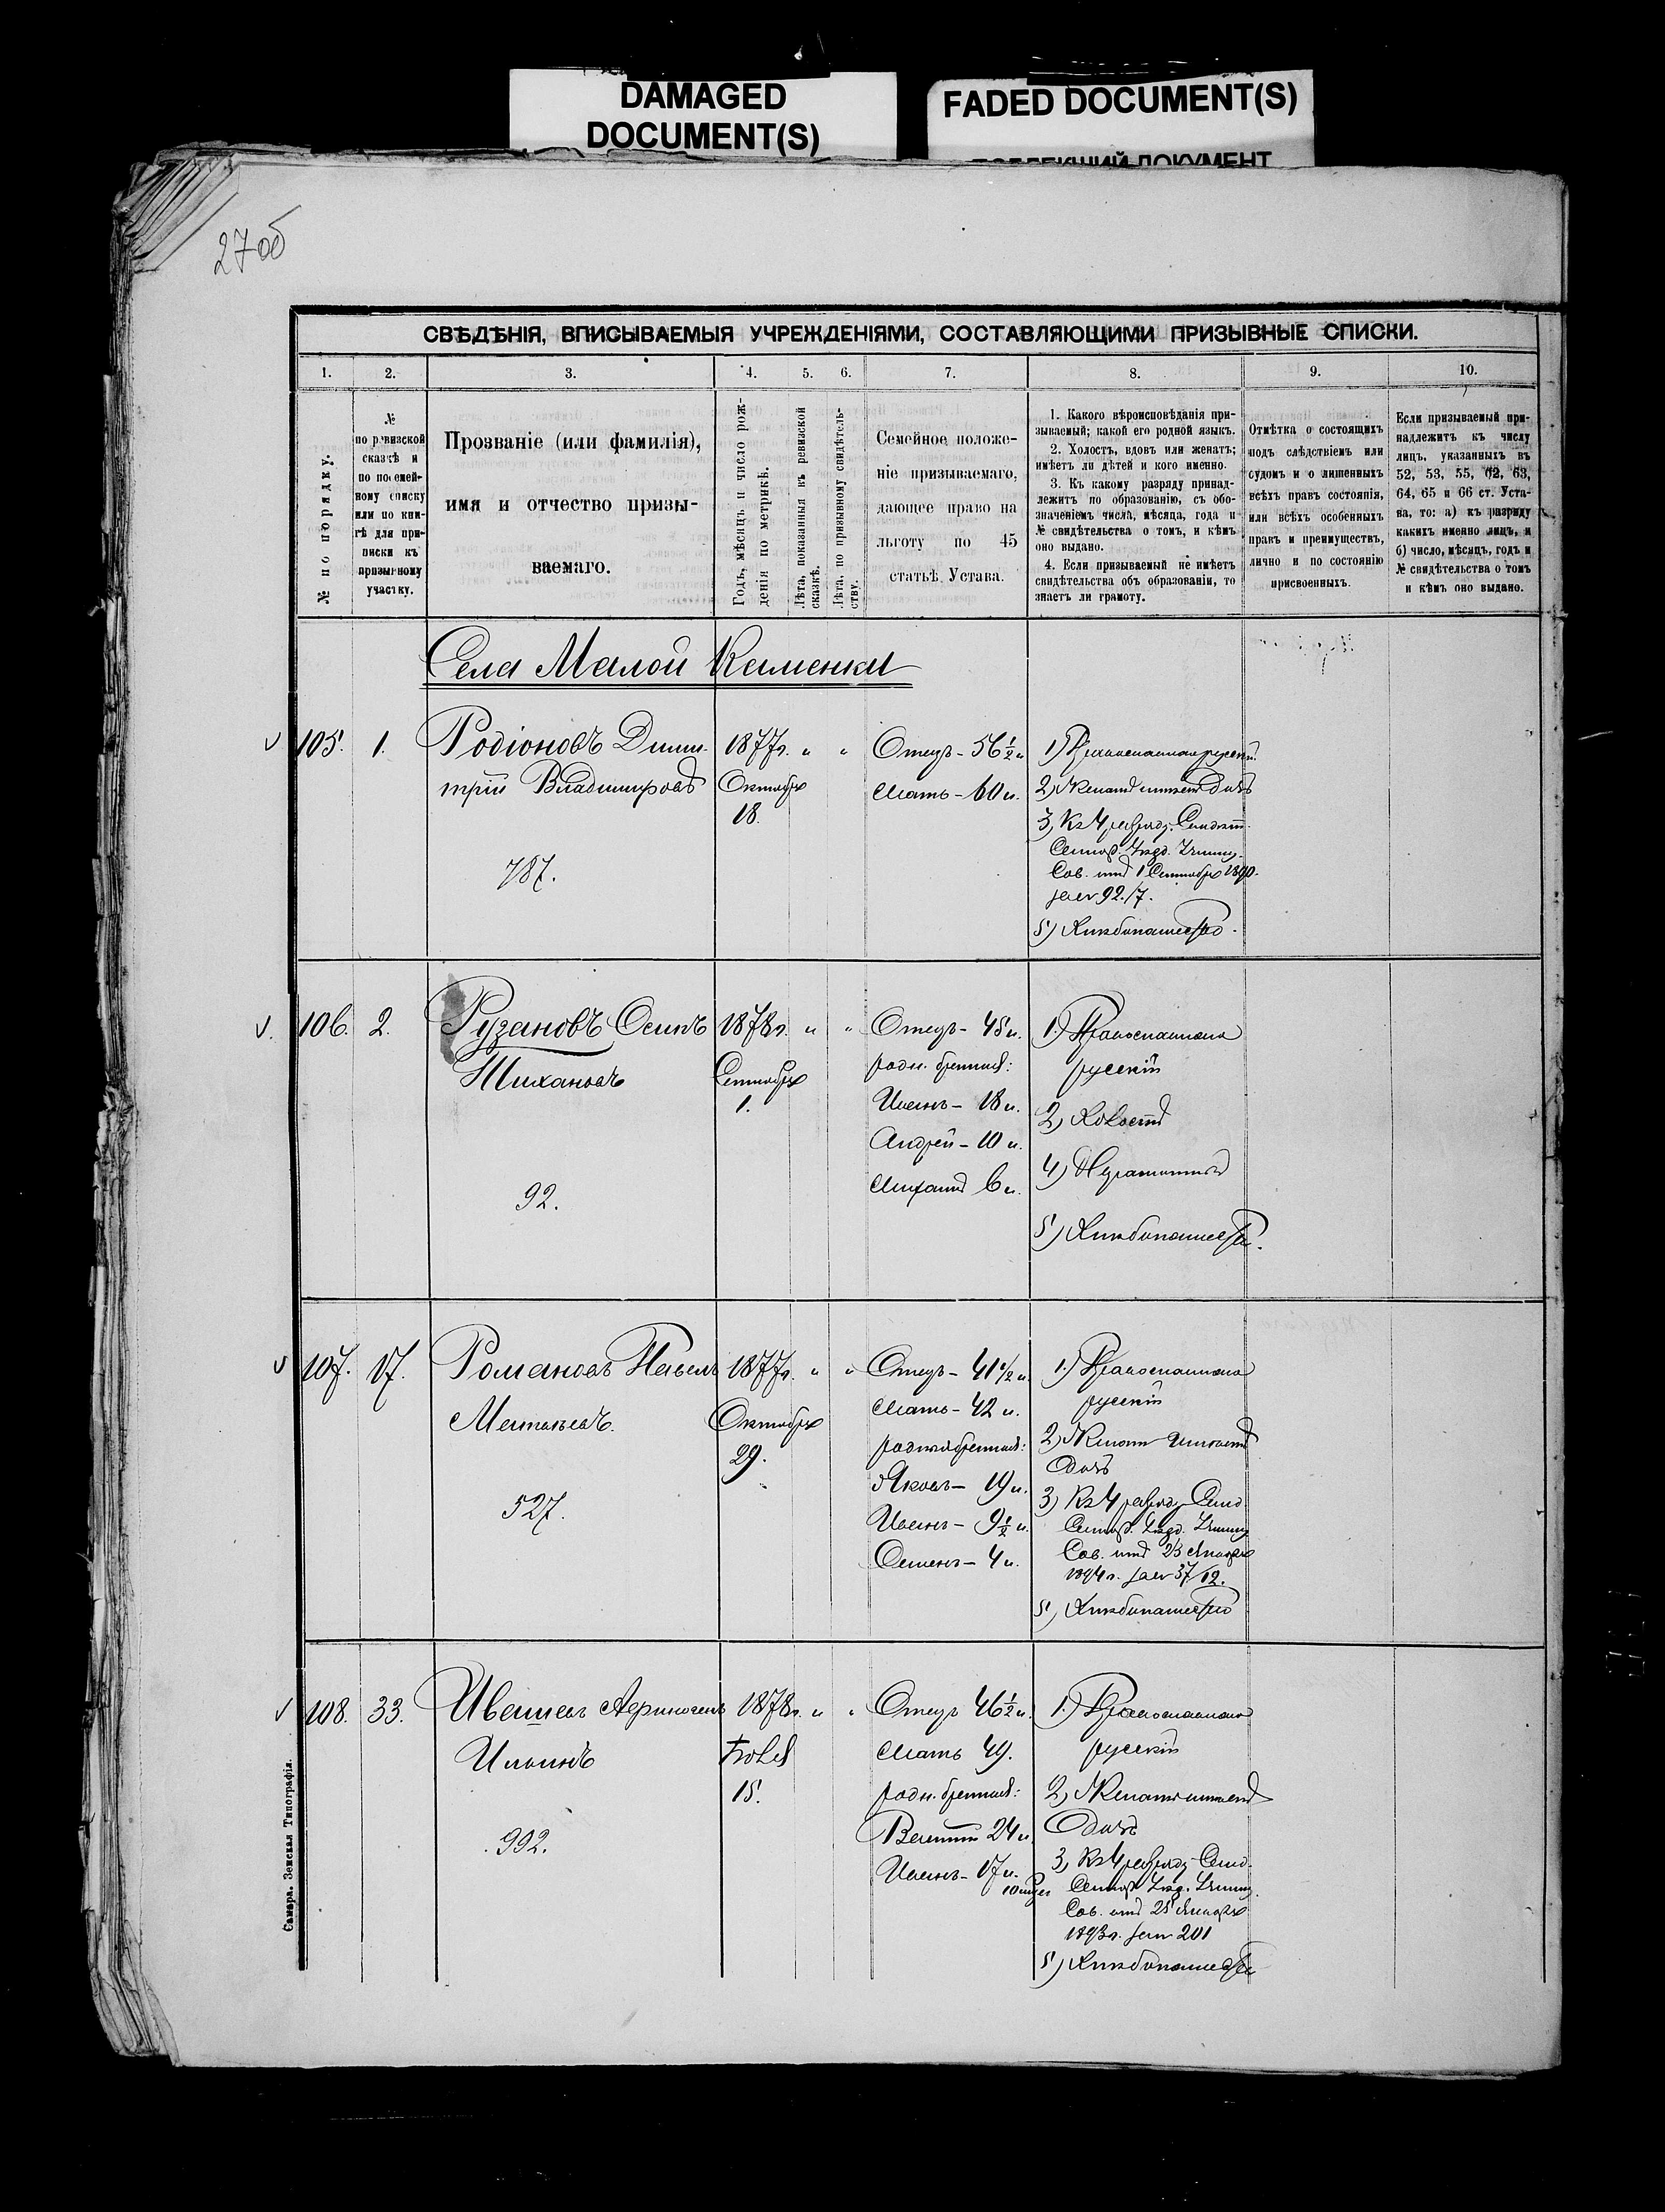 DAMAGED
DOCUMENT(S)
FADED DOCUMENT(S)
27об
СВѢДѢНІЯ, ВПИСЫВАЕМЫЯ УЧРЕЖДЕНІЯМИ, СОСТАВЛЯЮЩИМИ ПРИЗЫВНЫЕ СПИСКИ.
1. 2. 3. 4. 5. 6. 7. 8. 9. 10.
№ по порядку.
№
по ревизской
сказкѣ и
по посемей-
ному списку
или по кни-
гѣ для при-
писки къ
призывному
участку.
Прозваніе (или фамилія),
имя и отчество призы-
ваемаго.
Годъ, мѣсяцъ и число рож-
денія по метрикѣ.
Лѣта, показанныя въ ревизской
сказкѣ.
Лѣта, по призывному свидѣтель-
ству.
Семейное положе-
ніе призываемаго,
дающее право на
льготу по 45
статьѣ Устава.
1. Какого вѣроисповѣданія при-
зываемый; какой его родной языкъ.
2. Холостъ, вдовъ или женатъ;
имѣетъ ли дѣтей и кого именно.
3. Къ какому разряду принад-
лежитъ по образованію, съ обо-
значеніемъ числа, мѣсяца, года и
№ свидѣтельства о томъ, и кѣмъ
оно выдано.
4. Если призываемый не имѣетъ
свидѣтельства объ образованіи, то
знаетъ ли грамоту.
Отмѣтка о состоящихъ
подъ слѣдствіемъ или
судомъ и о лишенныхъ
всѣхъ правъ состоянія,
или всѣхъ особенныхъ
правъ и преимуществъ,
лично и по состоянію
присвоенныхъ.
Если призываемый при-
надлежитъ къ числу
лицъ, указанныхъ въ
52, 53, 55, 62, 63,
64, 65 и 66 ст. Уста-
ва, то: а) къ разряду
какихъ именно лицъ, и
б) число, мѣсяцъ, годъ и
№ свидѣтельства о томъ
и кѣмъ оно выдано.
Села Малой Каменки
105. 1. Родіоновъ Дими-
трій Владиміровъ
787.
1877г. " "
Октября
18.
Отецъ - 56 1/2 л.
Мать - 60 л.
1) Православный русскій.
2) Женатъ имѣетъ дочь
3) Къ 4 разряду.
1 Сентября 1890.
за № 92/7.
5) Хлѣбопашество.
106. 2. Рузановъ Осипъ
92.
1878г. " "
Сентября
1.
Отецъ - 45 л.
родн. братья:
Иванъ - 18 л.
Андрей - 10 л.
Михаилъ 6 л.
1) Православный
русскій
2) Холостъ
4) Неграмотный
5) Хлѣбопашество.
107. 17. Романовъ Павелъ
Матвѣевъ.
527.
1877г. " "
Октября
29.
Отецъ - 41 1/2 л.
Мать - 42 л.
родные братья:
Яковъ - 19 л.
Иванъ - 9 1/2 л.
Семенъ - 4 л.
1) Православный
русскій
2) Женатъ имѣетъ
дочь
3) Къ 4 разряду
23 Января
1894г. за № 37/12.
5) Хлѣбопашество
108. 33. Ивашевъ
Ильинъ
992.
1878г. " "
15.
Отецъ 46 1/2 л.
Мать 49.
родн. братья:
24 л.
Иванъ - 17 л.
1) Православный
русскій
2) Женатъ имѣетъ
дочь
3) Къ 4 разряду
25 Января
1893г. за № 201
5) Хлѣбопашество
Самара. Земская Типографія.